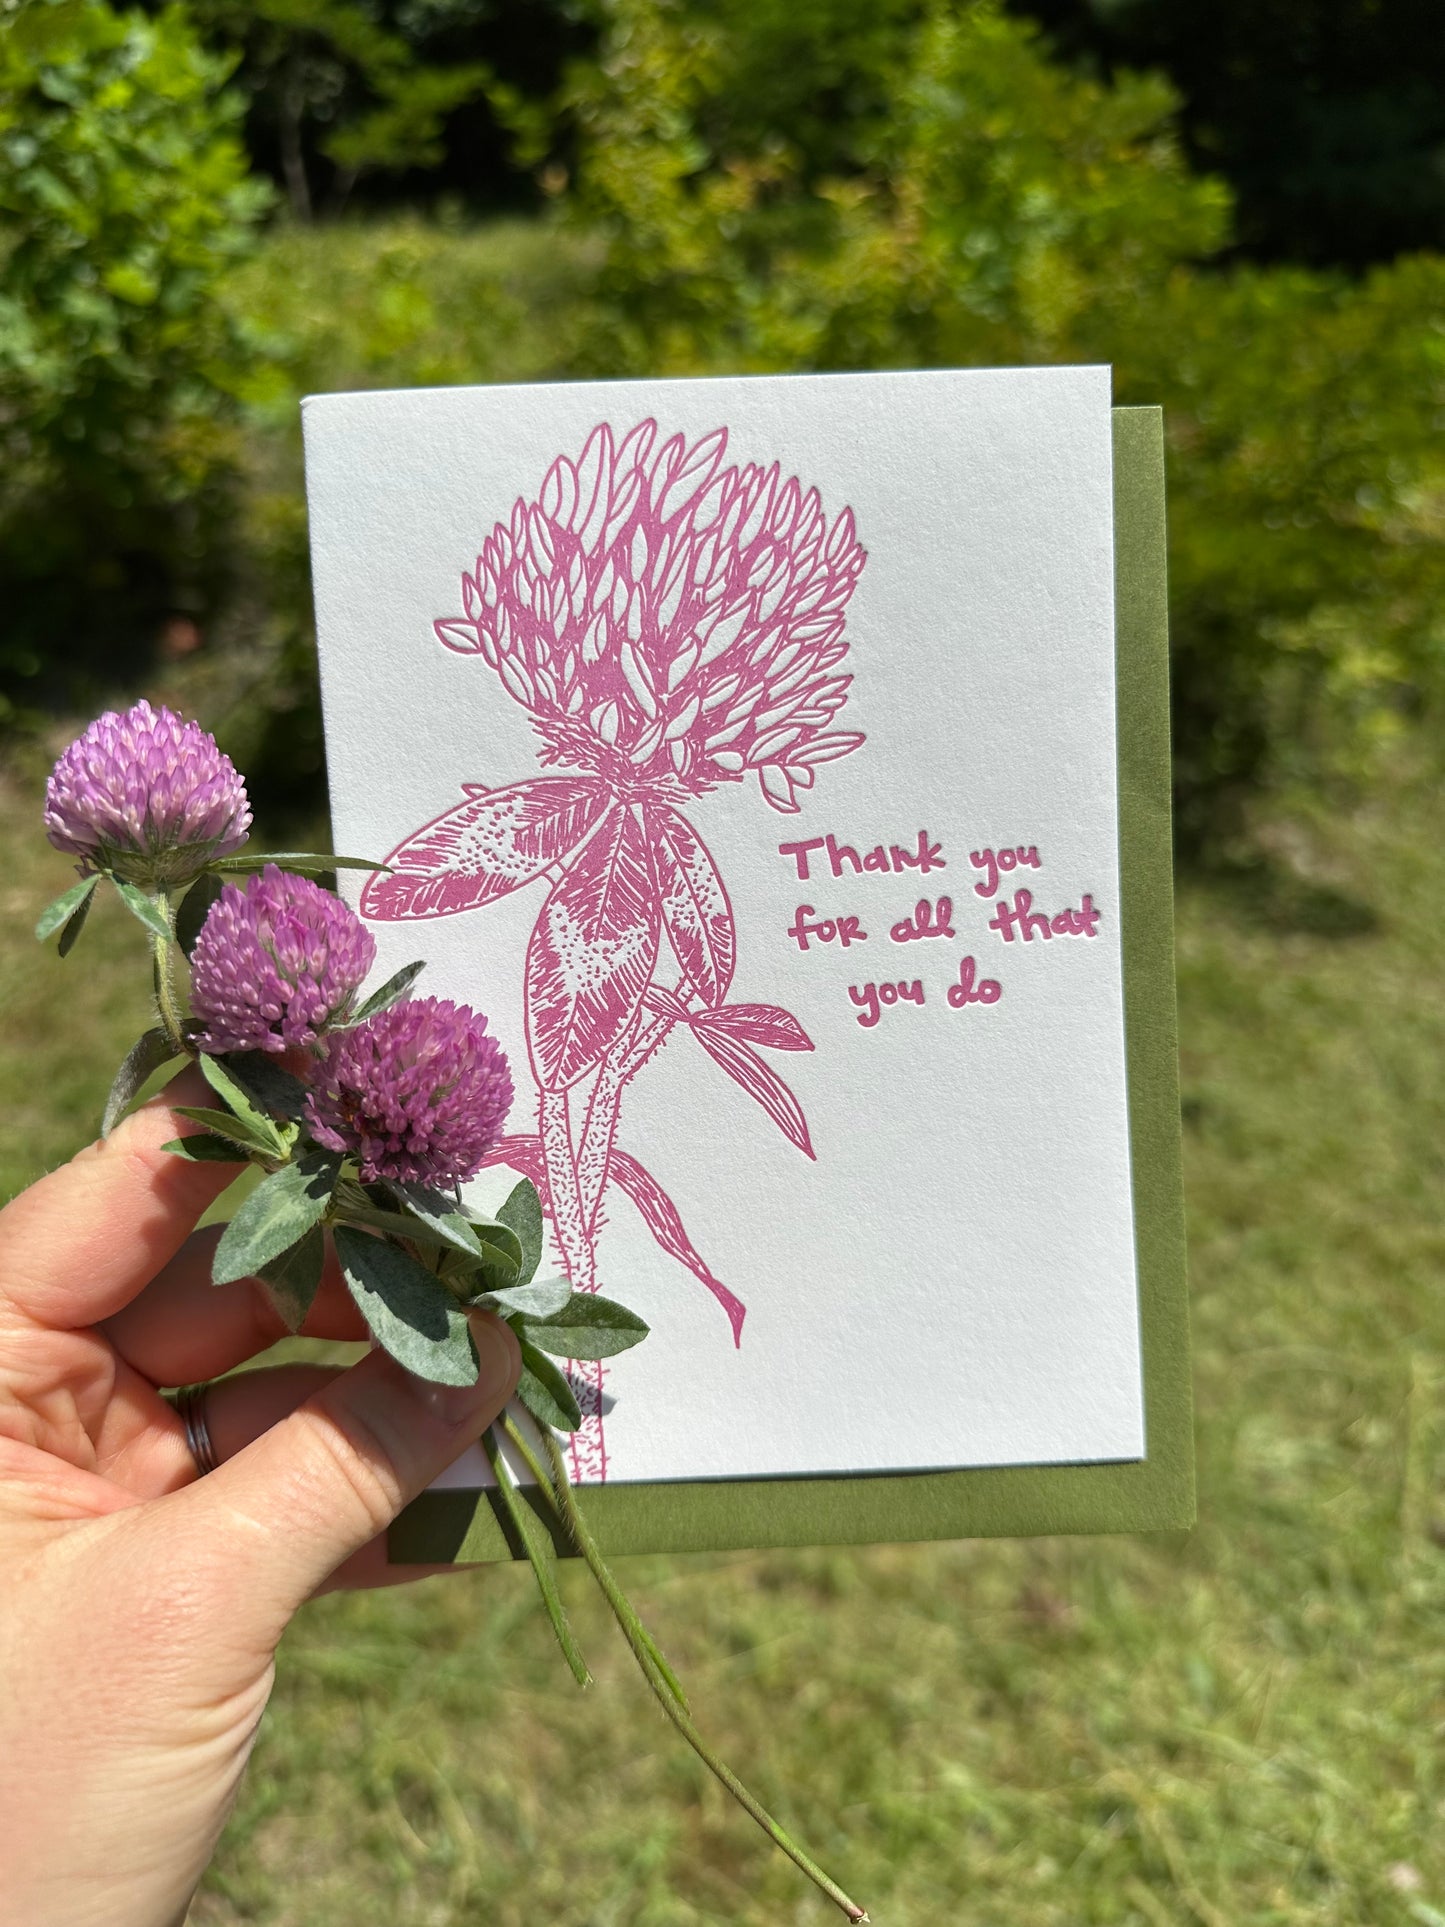 Thank you
for all that
you do